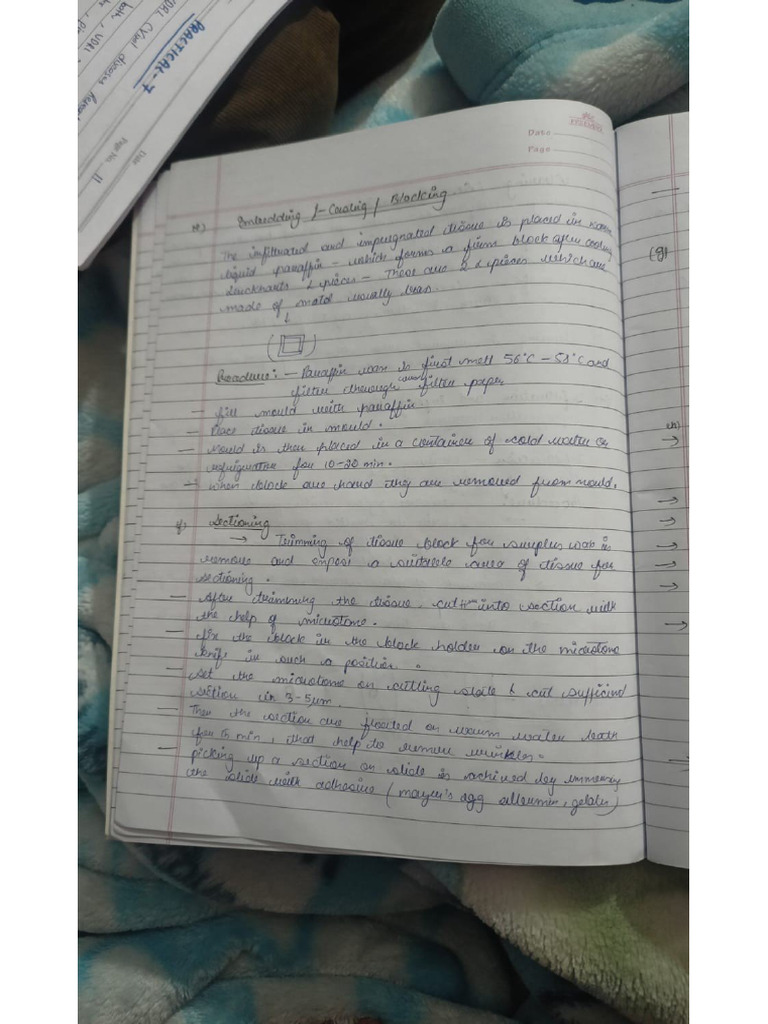 PRACTICAL-7
Page No. 11
Date
Page
e) Embedding /- Casting / Blocking
The infiltrated and impregnated tissue is placed in warm
liquid paraffin - which forms a firm block after cooling
2 L pieces - These are 2 L pieces which are
made of metal usually brass.
↓
Procedure:- - Paraffin wax is first melt 56°C - 58°C and
filter through filter paper
- fill mould with paraffin
- Place tissue in mould.
- Mould is then placed in a container of cold water or
refrigrator for 10-20 min.
- When block are hard they are removed from mould.
f) Sectioning
→ Trimming of tissue block for surplus wax is
remove and expose a suitable area of tissue for
sectioning.
- After trimming the tissue, cut into section with
the help of microtome.
- fix the block in the block holder on the microtome
knife in such a position.
- set the microtome on cutting state & cut sufficient
section in 3-5μm.
- Then the section are floated on warm water bath
for 15 min, that help to remove wrinkles.
- picking up a section on slide is achieved by immersing
the slide with adhesive (mayer's egg albumin, gelatin)
(g)
5)
→
→
→
→
→
→
→